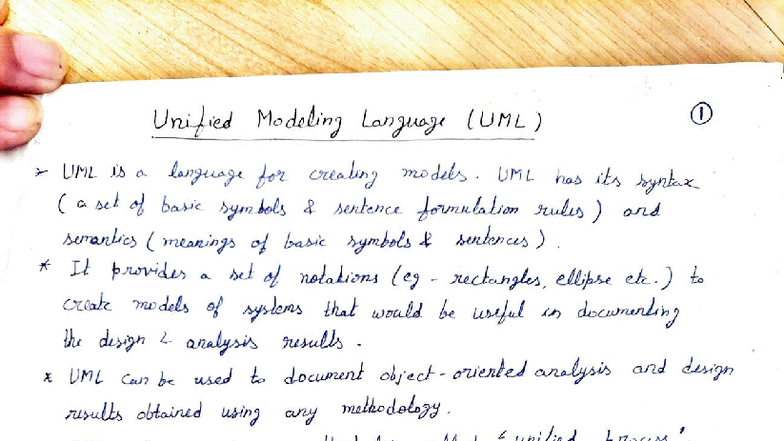 Unified Modeling Language (UML)
1
* UML is a language for creating models. UML has its syntax
( a set of basic symbols & sentence formulation rules ) and
semantics ( meanings of basic symbols & sentences ) .
* It provides a set of notations ( eg - rectangles, ellipse etc. ) to
create models of systems that would be useful in documenting
the design & analysis results .
* UML can be used to document object - oriented analysis and design
results obtained using any methodology .
' unified process '